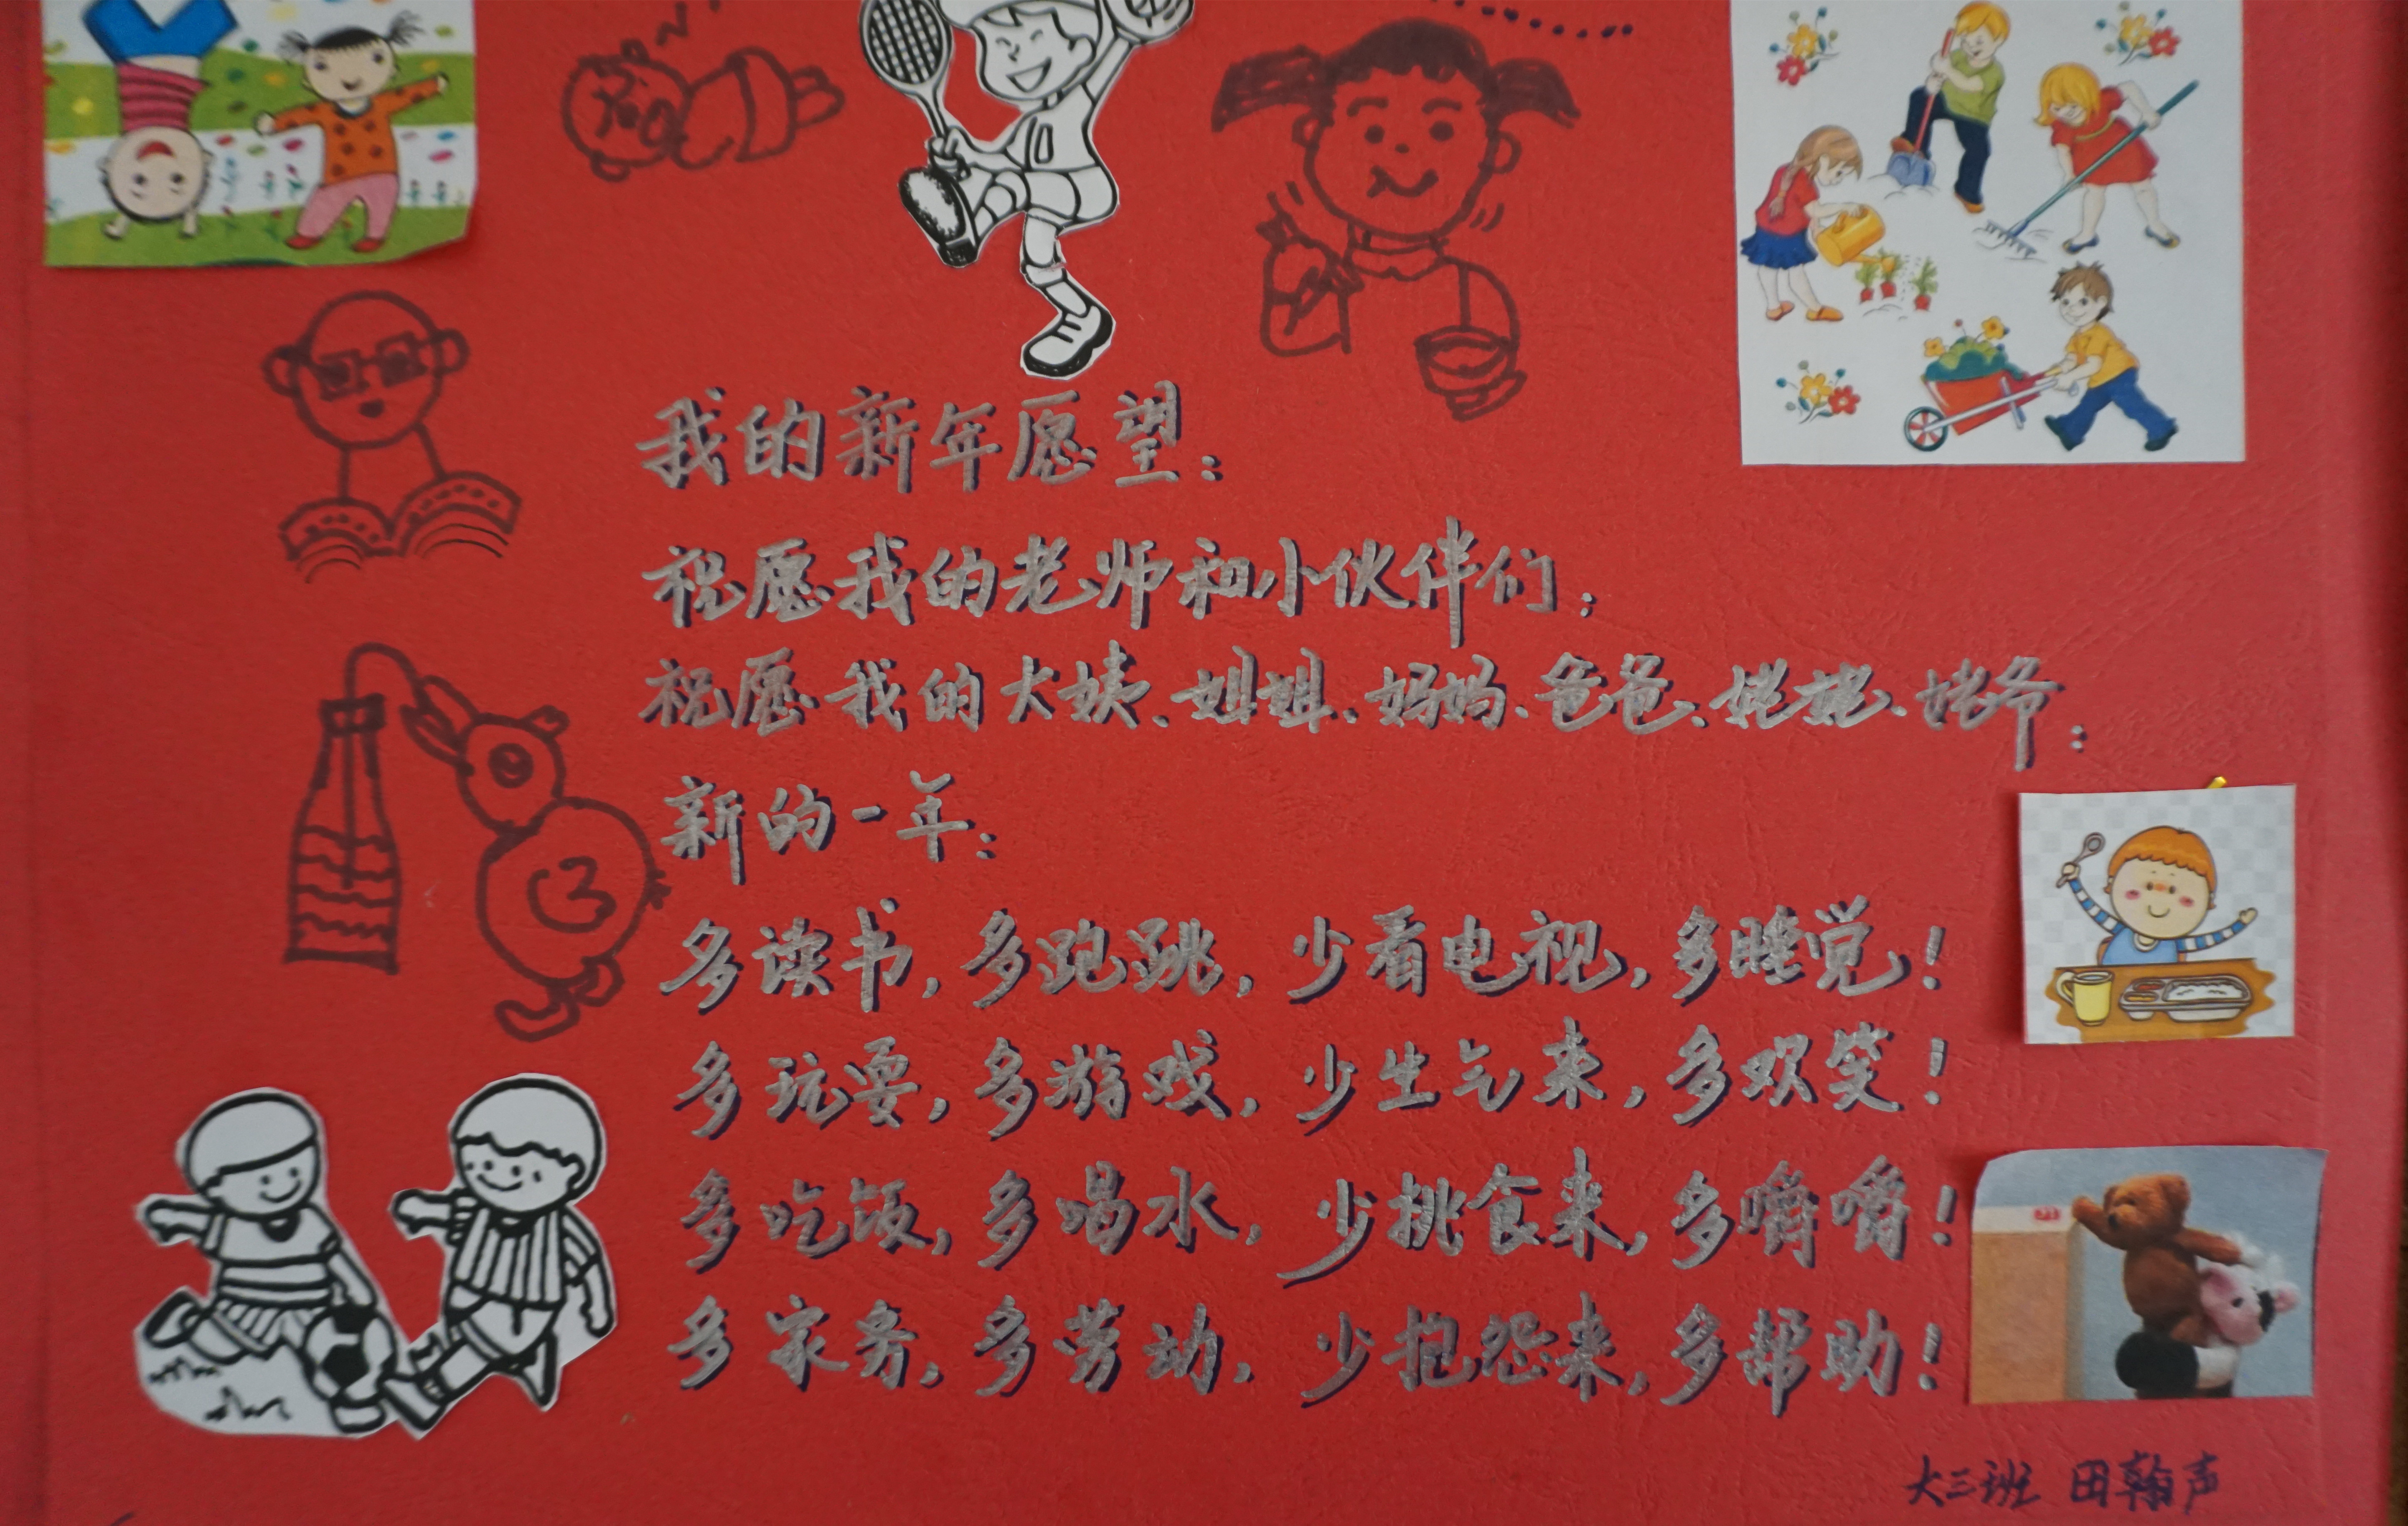 我的新年愿望：
祝愿我的老师和小伙伴们：
祝愿我的大姨、姐姐、妈妈、爸爸、姥姥、姥爷：
新的一年：
多读书，多跑跳，少看电视，多睡觉！
多玩耍，多游戏，少生气来，多欢笑！
多吃饭，多喝水，少挑食来，多嚼嚼！
多家务，多劳动，少抱怨来，多帮助！
大三班 田翰声